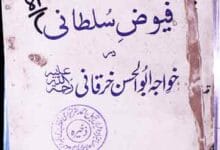 فیوضِ سلطانی
در
خواجہ ابوالحسن خرقانی رحمۃ اللہ علیہ
ذخیرہ